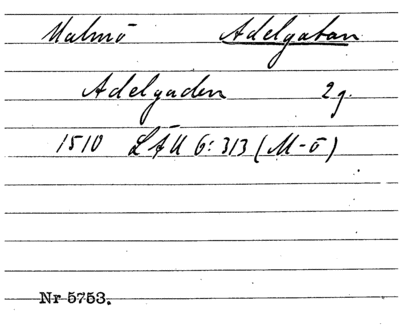 Malmö Adelgatan
Adelgaden 2g.
1510 LÄU 6:313 (M-ö)
Nr 5753.